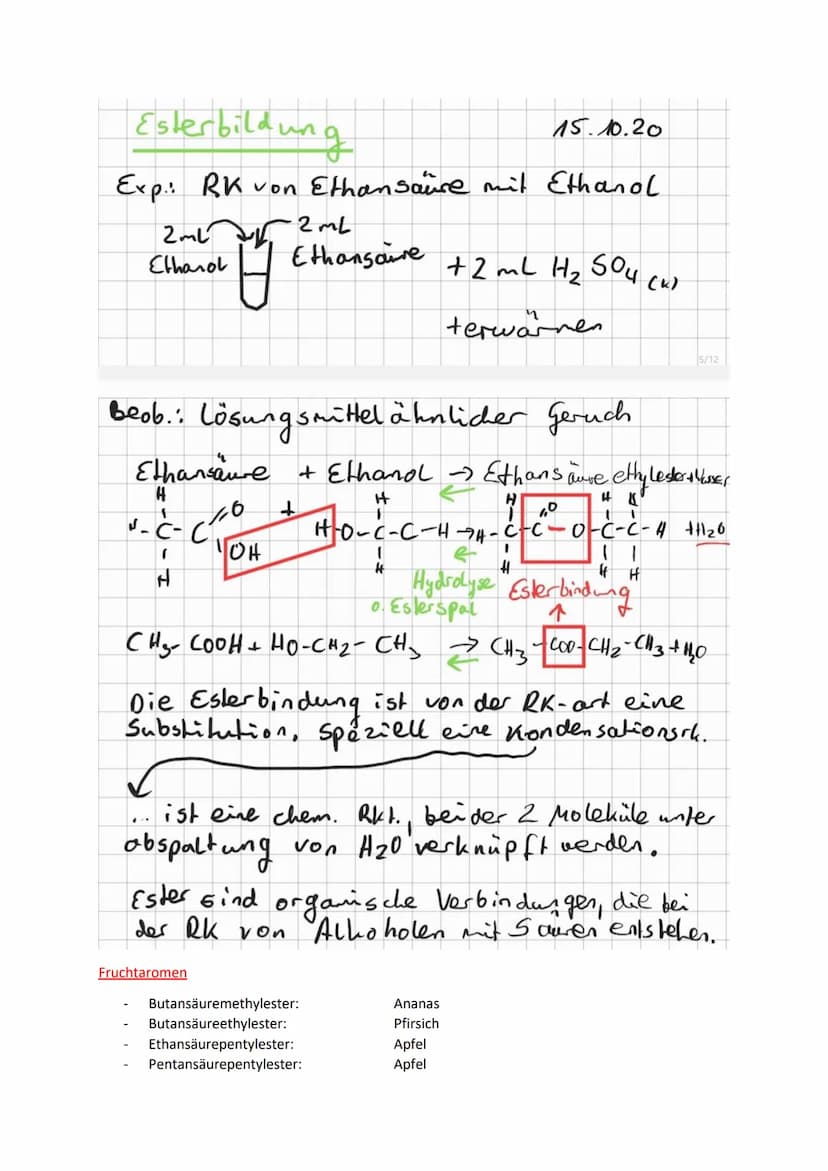 Esterbildung 15.10.20
Exp.: RK von Ethansäure mit Ethanol
2mL 2 mL
Ethanol Ethansäure + 2 mL H2SO4 (k)
+ erwärmen
5/12
Beob.: Lösungsmittel ähnlicher Geruch
Ethansäure + Ethanol → Ethansäureethylester + Wasser
H H H H H
H - C - C = O + H O - C - C - H → H - C - C = O - O - C - C - H + H2O
OH
H H H H H
Hydrolyse Esterbindung
o. Esterspal
CH3 - COOH + HO - CH2 - CH3 → CH3 - COO - CH2 - CH3 + H2O
Die Esterbindung ist von der RK-art eine
Substitution, speziell eine Kondensationsrk.
... ist eine chem. Rkt., bei der 2 Moleküle unter
abspaltung von H2O verknüpft werden.
Ester sind organische Verbindungen, die bei
der RK von Alkoholen mit Säuren entstehen.
Fruchtaromen
- Butansäuremethylester: Ananas
- Butansäureethylester: Pfirsich
- Ethansäurepentylester: Apfel
- Pentansäurepentylester: Apfel